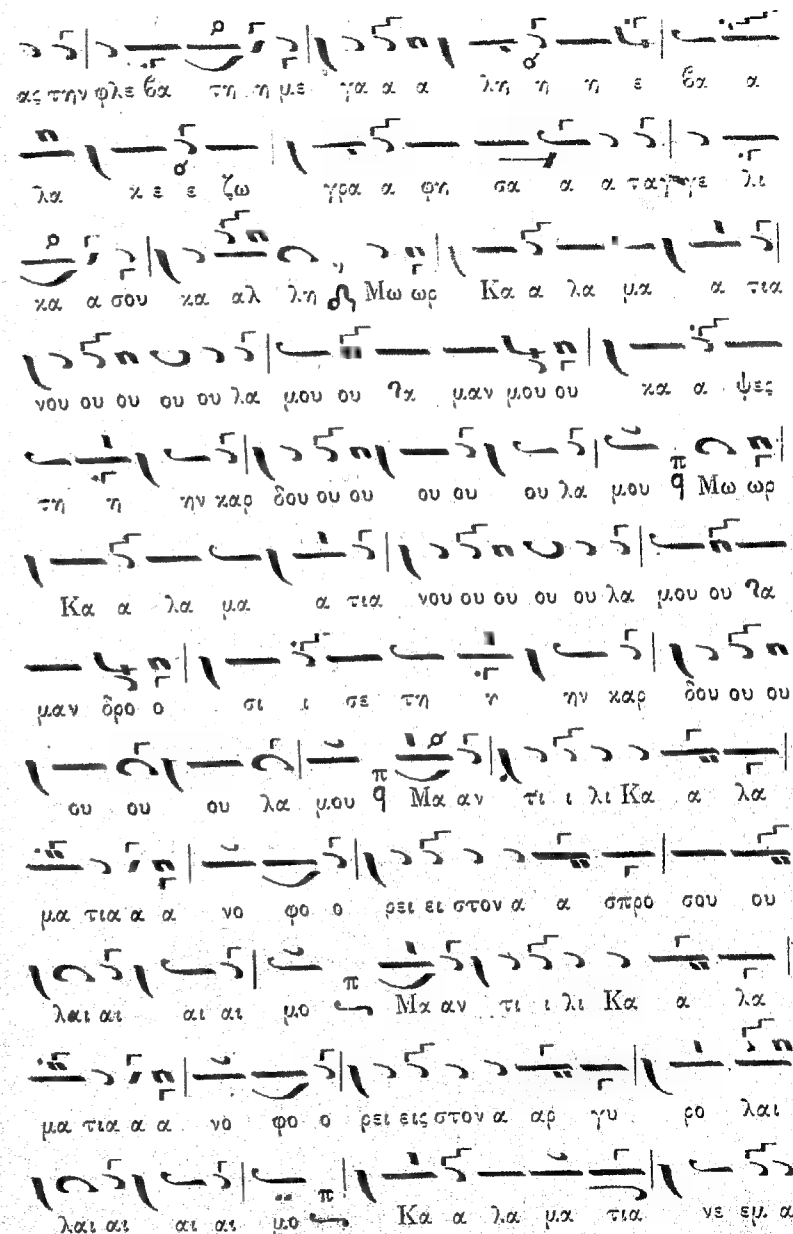 ας την φλε βα τη η με γα α α λη η η ε βα α
λα κ ε ε ζω γρα α φη σα α α τα γ γε λι
κα α σου κα αλ λη Μω ωρ Κα α λα μα α τια
νου ου ου ου ου λα μου ου μαν μου ου κα α ψες
τη η ην καρ δου ου ου ου ου ου λα μου π Μω ωρ
Κα α λα μα α τια νου ου ου ου ου λα μου ου
μαν δρο ο σι ι σε τη η ην καρ δου ου ου
ου ου ου λα μου π Μα αν τι ι λι Κα α λα
μα τια α α νο φο ο ρει ει στον α α σπρο σου ου
λαι αι αι αι μο π Μα αν τι ι λι Κα α λα
μα τια α α νο φο ο ρει εις στον α αρ γυ ρο λαι
λαι αι αι αι μο π Κα α λα μα τια νε εμ α